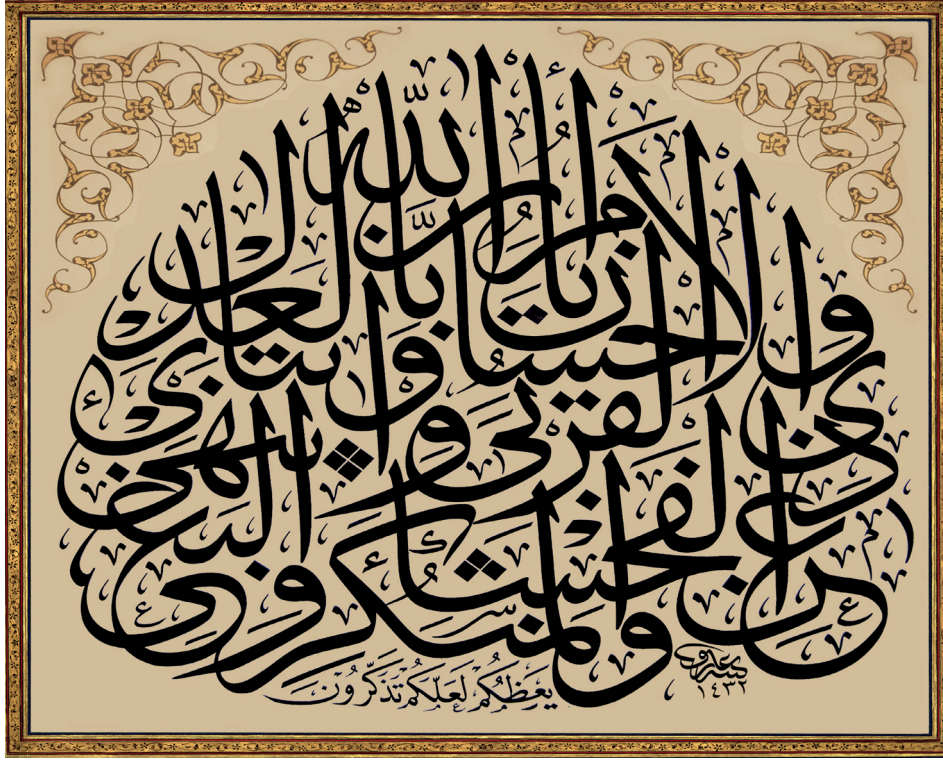 إن الله يأمر بالعدل والإحسان وإيتاء ذي القربى وينهى عن الفحشاء والمنكر والبغي
يَعِظُكُمْ لَعَلَّكُمْ تَذَكَّرُونَ
١٤٣٢